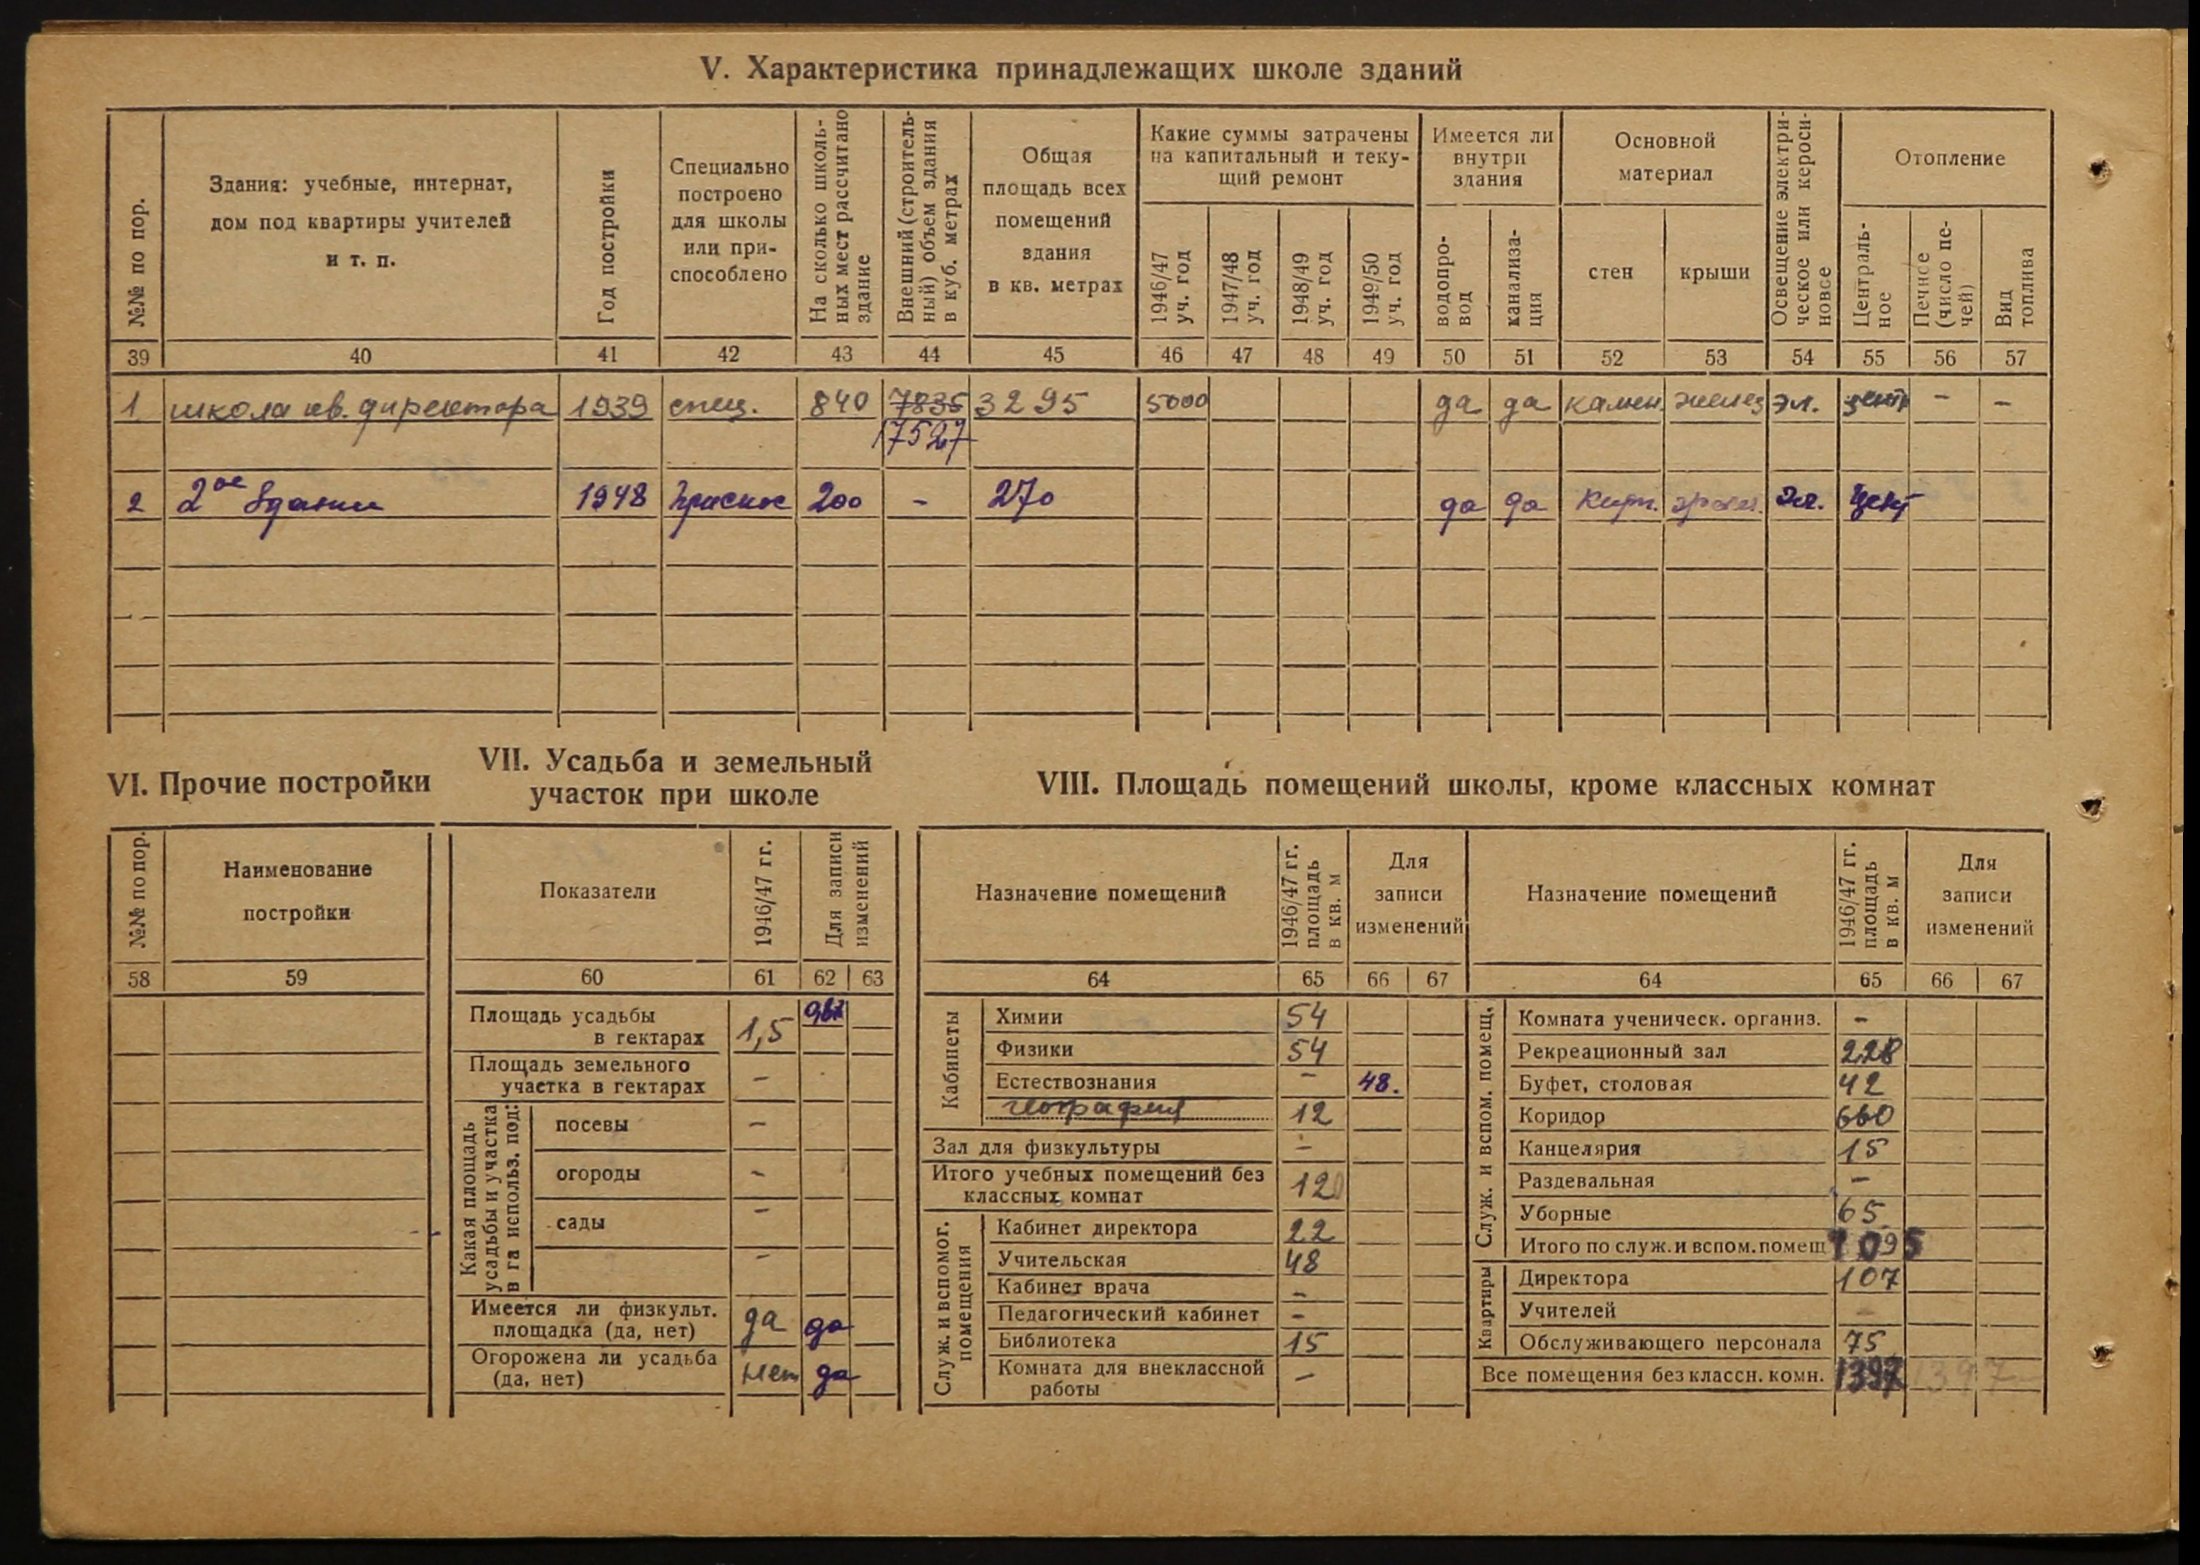 V. Характеристика принадлежащих школе зданий
№№ по пор.
Здания: учебные, интернат,
дом под квартиры учителей
и т. п.
Год постройки
Специально
построено
для школы
или при-
способлено
На сколько школь-
ных мест рассчитано
здание
Внешний (строитель-
ный) объем здания
в куб. метрах
Общая
площадь всех
помещений
здания
в кв. метрах
Какие суммы затрачены
на капитальный и теку-
щий ремонт
1946/47
уч. год
1947/48
уч. год
1948/49
уч. год
1949/50
уч. год
Имеется ли
внутри
здания
водопро-
вод
канализа-
ция
Основной
материал
стен
крыши
Освещение электри-
ческое или кероси-
новое
Отопление
Централь-
ное
Печное
(число пе-
чей)
Вид
топлива
39 40 41 42 43 44 45 46 47 48 49 50 51 52 53 54 55 56 57
1 школа кв. директора 1939 спец. 840 7835 3295 5000 да да камен. желез эл. центр – –
17527
2 2ое здание 1948 200 – 270 да да кирп. эл. цент
VI. Прочие постройки
№№ по пор.
Наименование
постройки
58 59
VII. Усадьба и земельный
участок при школе
Показатели
1946/47 гг.
Для записи
изменений
60 61 62 63
Площадь усадьбы
в гектарах 1,5
Площадь земельного
участка в гектарах –
Какая площадь
усадьбы и участка
в га использ. под:
посевы –
огороды –
сады –
–
Имеется ли физкульт.
площадка (да, нет) да да
Огорожена ли усадьба
(да, нет) нет да
VIII. Площадь помещений школы, кроме классных комнат
Назначение помещений
1946/47 гг.
площадь
в кв. м
Для
записи
изменений
64 65 66 67
Кабинеты
Химии 54
Физики 54
Естествознания – 48.
географии 12
Зал для физкультуры –
Итого учебных помещений без
классных комнат 120
Служ. и вспомог.
помещения
Кабинет директора 22
Учительская 48
Кабинет врача –
Педагогический кабинет –
Библиотека 15
Комната для внеклассной
работы –
Назначение помещений
1946/47 гг.
площадь
в кв. м
Для
записи
изменений
64 65 66 67
Служ. и вспом. помещ.
Комната ученическ. организ. –
Рекреационный зал 228
Буфет, столовая 42
Коридор 660
Канцелярия 15
Раздевальная –
Уборные 65
Итого по служ. и вспом. помещ 1095
Квартиры
Директора 107
Учителей –
Обслуживающего персонала 75
Все помещения без классн. комн. 1397 1397